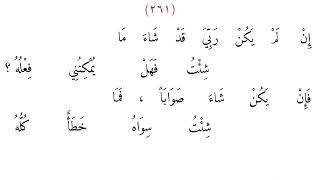 (٢٦١)
إِنْ لَمْ يَكُنْ رَبِّيَ قَدْ شَاءَ مَا
شِئْتُ فَهَلْ يُمْكِنُنِي فِعْلُهُ ؟
فَإِنْ يَكُنْ شَاءَ صَوَاباً ، فَمَا
شِئْتُ سِوَاهُ خَطَأٌ كُلُّهُ